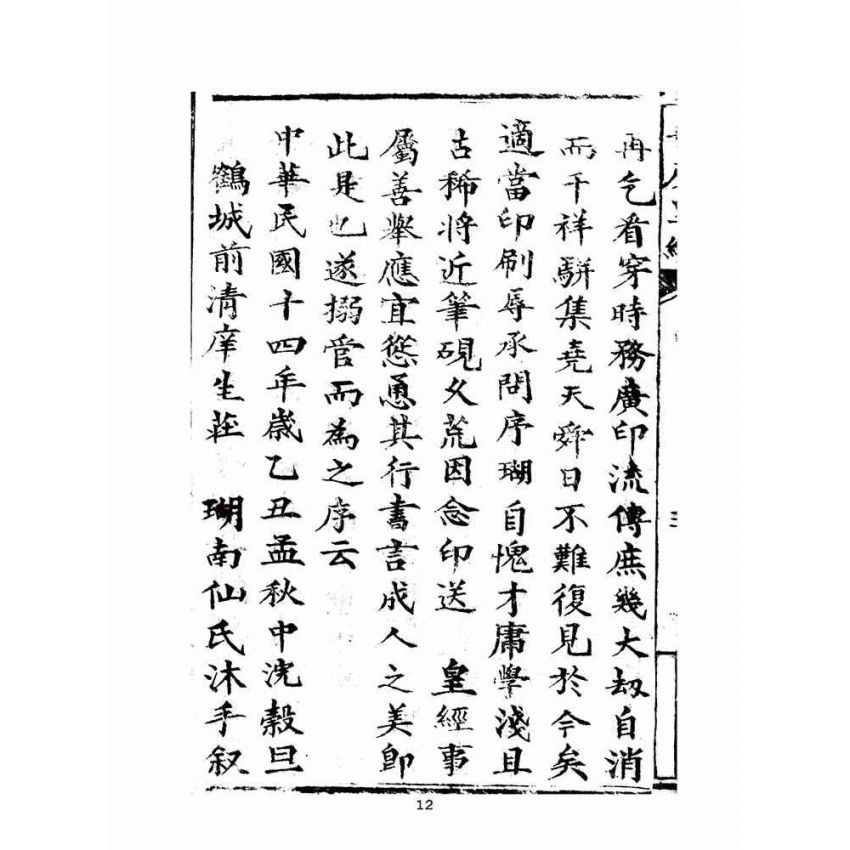 再乞看穿時務廣印流傳庶幾大劫自消
而千祥駢集堯天舜日不難復見於今矣
適當印刷辱承問序瑚自愧才庸學淺且
古稀將近筆硯久荒因念印送 皇經事
屬善舉應宜慫恿其行書言成人之美卽
此是也遂搦管而為之序云
中華民國十四年歲乙丑孟秋中浣穀旦
鶴城前清庠生莊 瑚南仙氏沐手叙
12